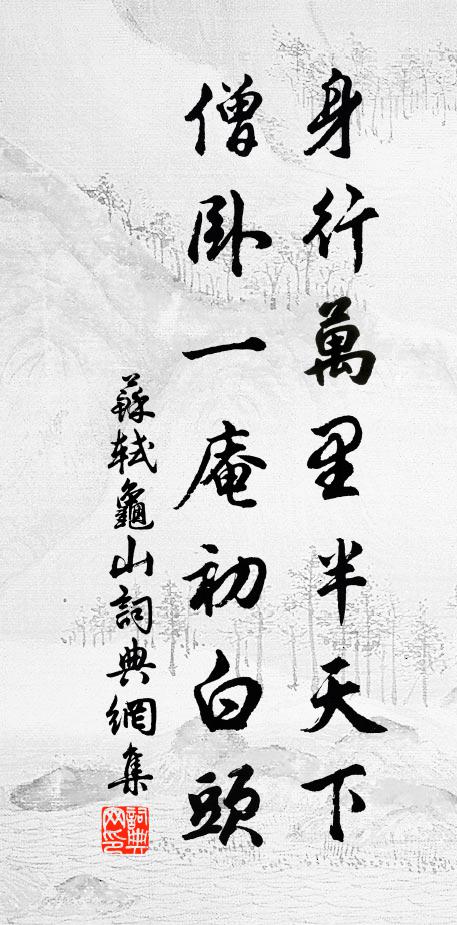 身行萬里半天下
僧臥一庵初白頭
蘇軾龜山詞典網集
詞典網印